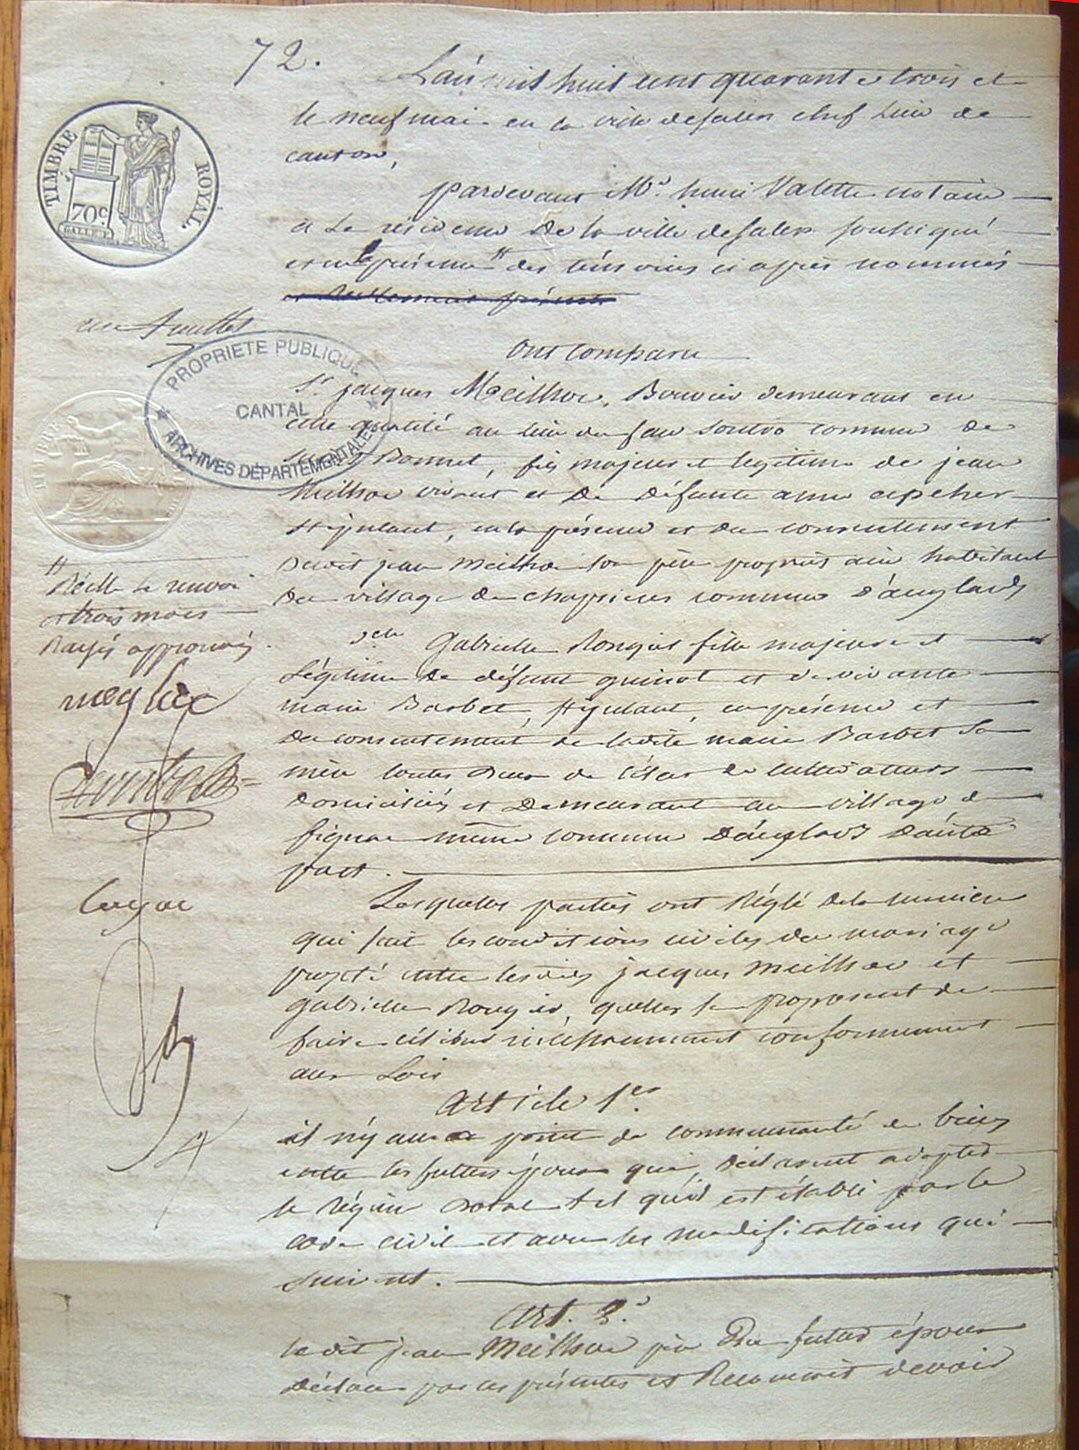 72.
L'an mil huit cent quarante trois et
le neuf mai en la ville de salers chef lieu de
canton,
pardevant Me. henri Valette notaire
à la résidence de la ville de salers soussigné
et en présence des témoins ci après nommés
TIMBRE ROYAL.
70c
ont comparu
PROPRIETE PUBLIQUE
CANTAL
ARCHIVES DEPARTEMENTALES
Sr. jacques Meilhoc, Bouvier demeurant en
cette qualité au lieu de commune de
Bonnet, fils majeur et légitime de jean
Meilhoc vivant et de défunte anne
stipulant, en la présence et du consentement
dudit jean Meilhoc son père propriétaire habitant
du village de commune d'anglards
Gabrielle Rongier fille majeure et
Légitime de défunt guinot et de vivante
marie Barbet, stipulant, en présence et
du consentement de ladite marie Barbet sa
mère toutes deux de l'état de cultivateurs
domiciliées et demeurant au village de
fignac même commune d'anglards d'autre
part.
renvoi
trois mots
Rayés approuvés
Lesquelles parties ont Réglé de la manière
qui suit les conditions civiles du mariage
projeté entre lesdits jacques Meilhoc et
gabrielle Rongier, qu'elles se proposent de
faire célébrer incessamment conformément
aux Lois
Article 1er.
il n'y aura point de communauté de biens
entre les futurs époux qui, déclarent adopter
le régime dotal tel qu'il est établi par le
code civil et avec les modifications qui
suivent.
Art. 2.
le dit jean Meilhoc père du futur époux
déclare par ces présentes et Reconnoit devoir